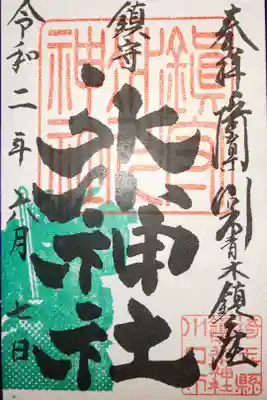 奉拝 川口市青木鎮座
鎮守
氷川神社
令和二年六月七日
鎮守氷川神社
埼玉縣
川口市